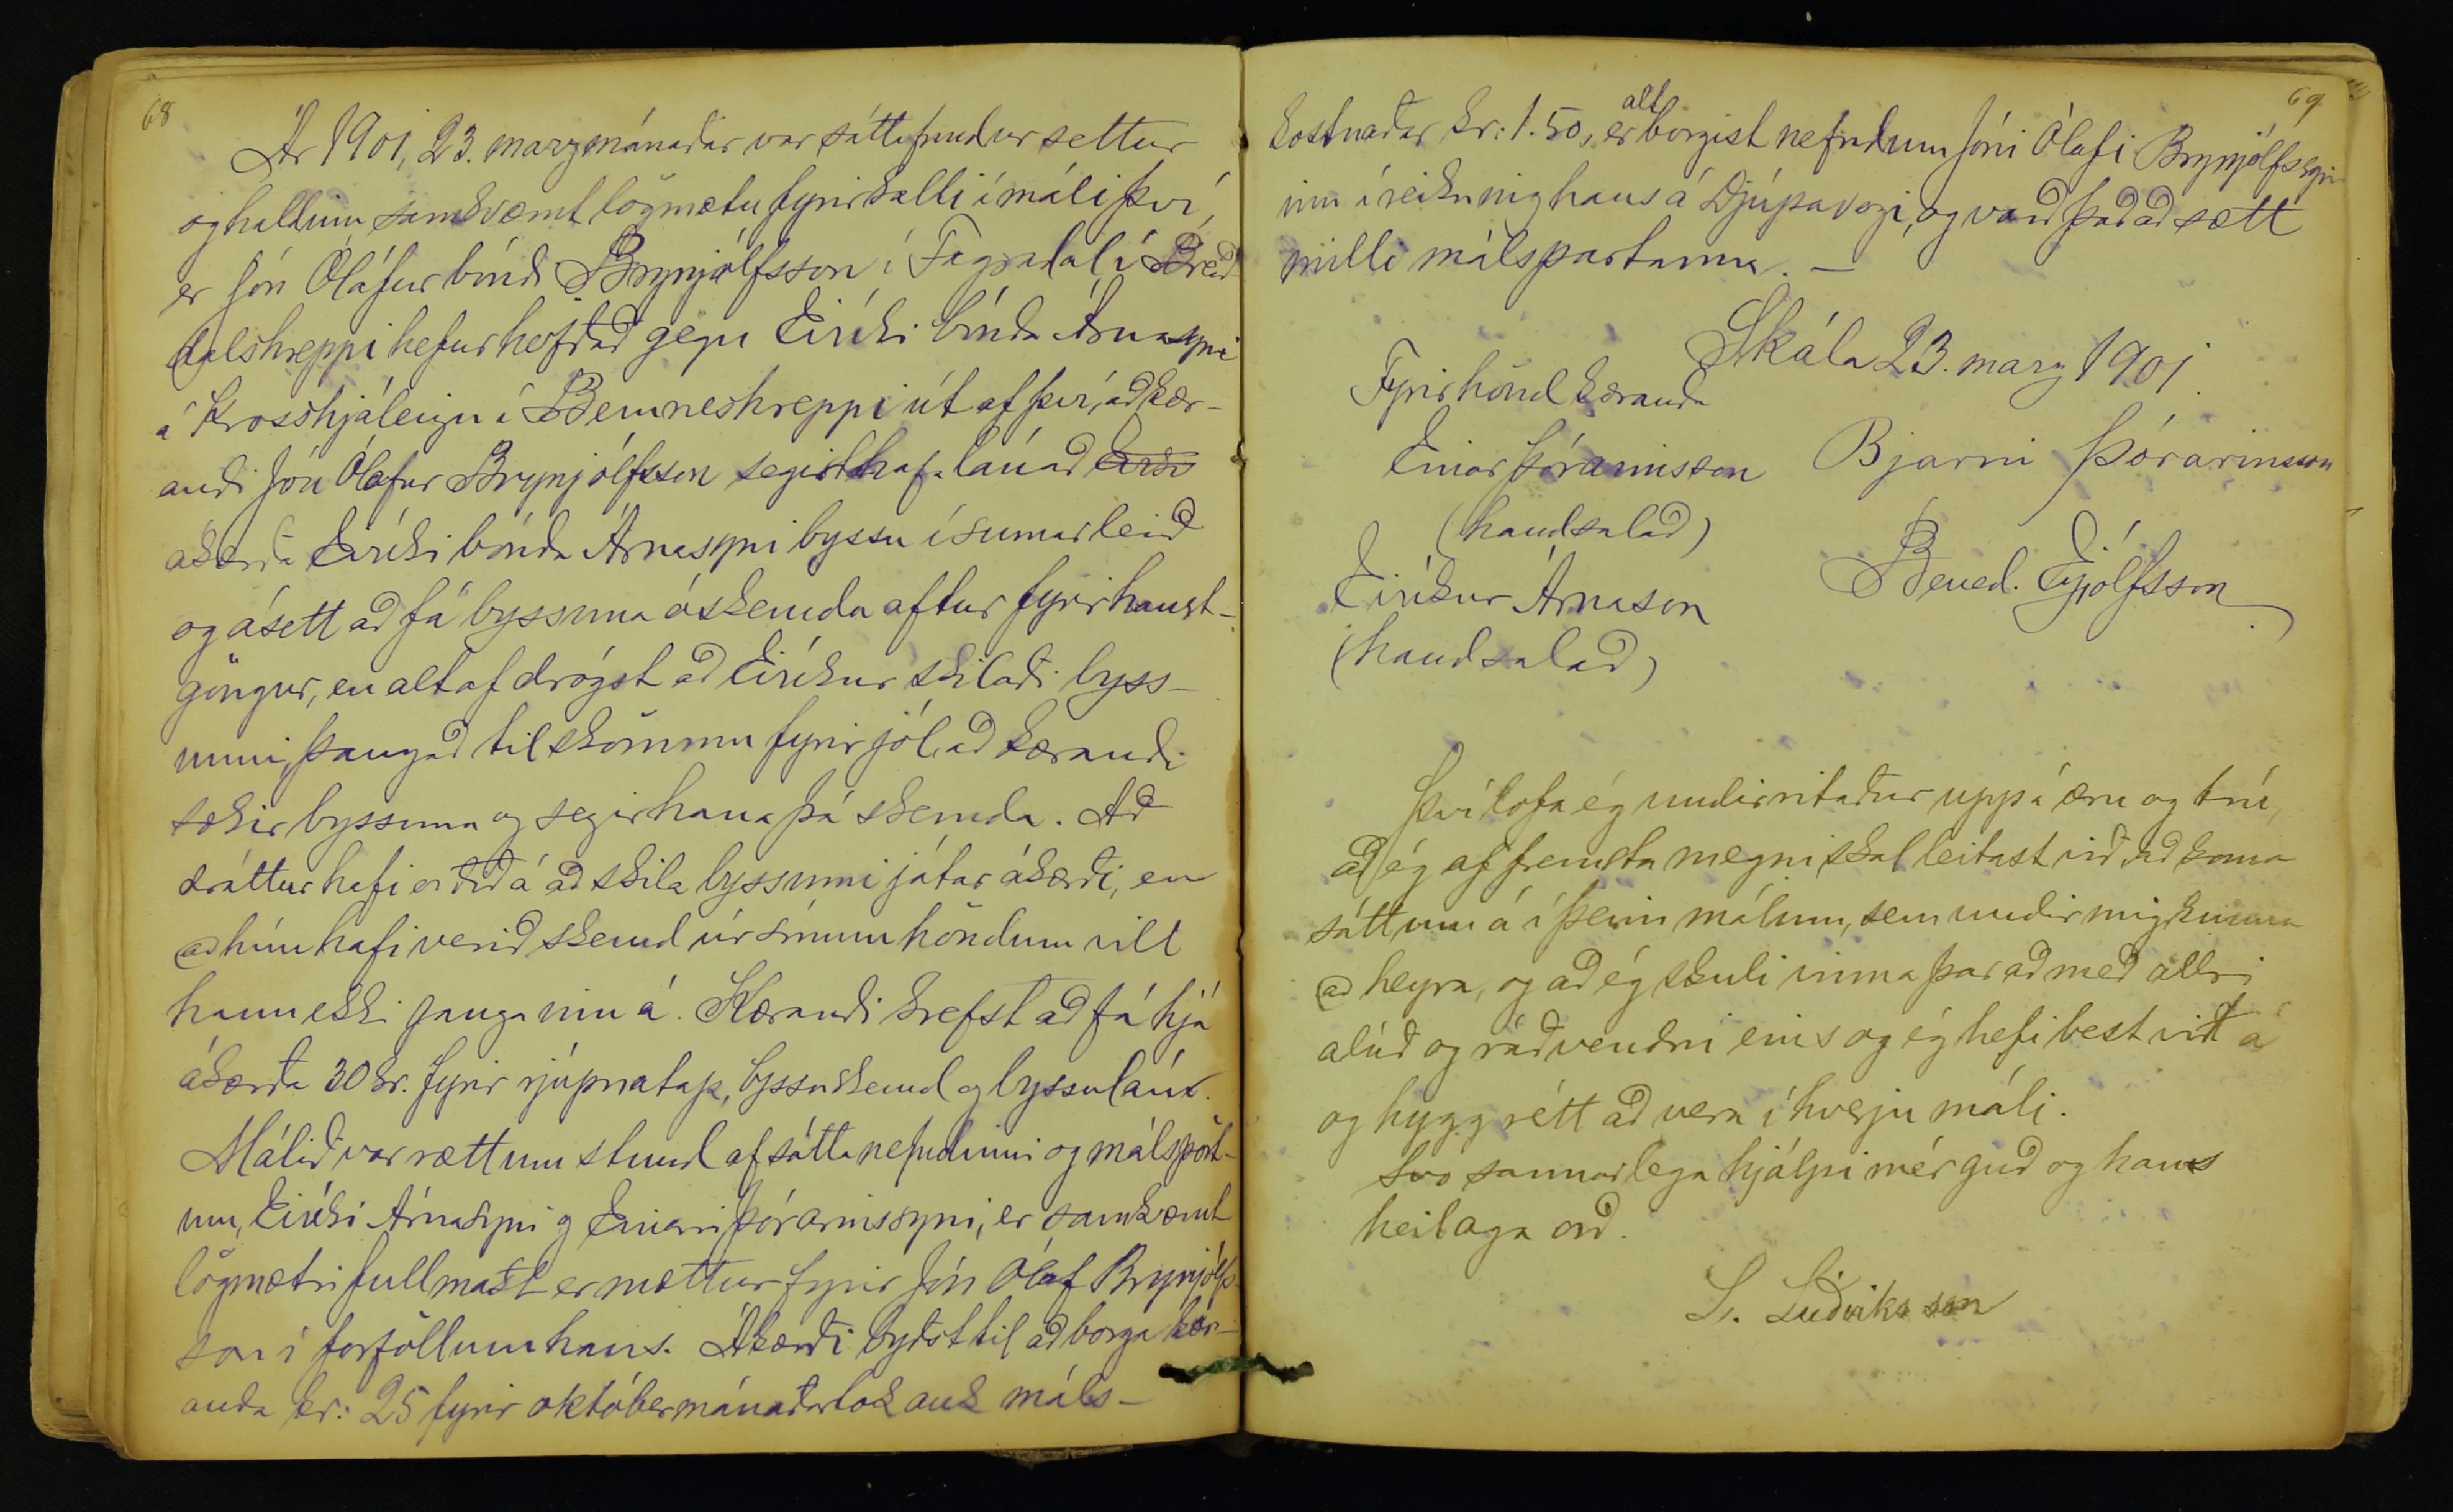 68
Ár 1901, 23. marzmánaðar var sáttafundur settur
og haldinn samkvæmt lögmætu fyrirkalli í máli því,
er Jón Ólafur bóndi Brynjólfsson í Fagradal í Breið-
dalshreppi hefur höfðað gegn Eiríki bónda Árnasyni
á Krosshjáleigu í Beruneshreppi út af því, að kær-
andi Jón Ólafur Brynjólfsson segist hafa lánað
ákærða Eiríki bónda Árnasyni byssu í sumar leið
og ásett að fá byssuna óskemda aftur fyrir haust-
göngur, en altaf drógst að Eiríkur skilaði byss-
unni, þangað til skömmu fyrir jól, að kærandi
sækir byssuna og segir hana þá skemda. Að
dráttur hafi orðið á að skila byssunni játar ákærði, en
að hún hafi verið skemd úr sínum höndum vill
hann ekki ganga inn á. Kærandi krefst að fá hjá
ákærða 30 kr. fyrir rjúpnatap, byssuskemd og byssulán.
Málið var rætt um stund af sáttanefndinni og málspört-
um, Eiríki Árnasyni og Einari Þórarinssyni, er samkvæmt
lögmætri fullmakt er mættur fyrir Jón Ólaf Brynjólfs-
son í forföllum hans. Ákærði byðst til að borga kær-
anda kr: 25 fyrir októbermánaðarlok auk máls-
69
kostnaðar kr: 1.50, er alt borgist nefndum Jóni Ólafi Brynjólfssyni
inn í reikning hans á Djúpavogi, og varð það að sætt
milli málspartanna. -
Skála 23. marz 1901.
Fyrir hönd kæranda
Einar Þórarinsson Bjarni Þórarinsson
(handsalað)
Eiríkur Árnason Bened. Eyjólfsson
(handsalað)
Því lofa ég undirritaður uppá æru og trú,
að ég af fremsta megni skal leitast við að koma
sáttum á í þeim málum, sem undir mig kunna
að heyra, og að ég skuli vinna þar að með allri
alúð og ráðvendni eins og ég hefi best vit á
og hygg rétt að vera í hverju máli.
Svo sannarlega hjálpi mér guð og hans
heilaga orð.
L. Lúðvíksson